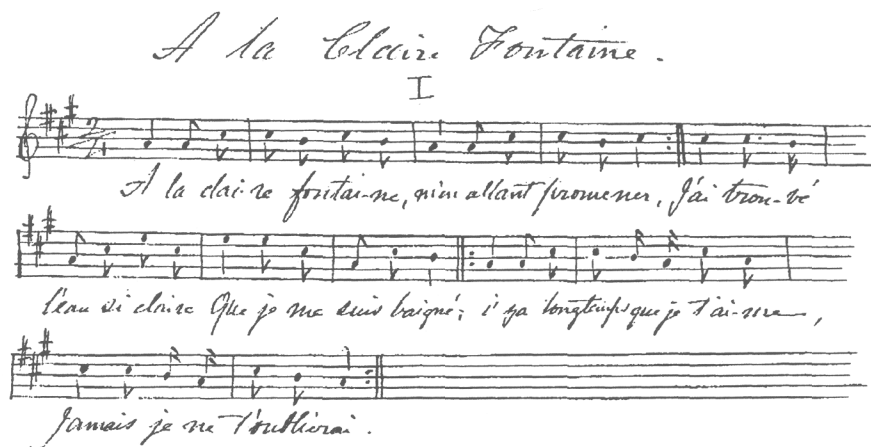 A la Claire Fontaine.
I
A la clai-re fontai-ne, m'en allant promener, J'ai trou-vé
l'eau si claire Que je me suis baigné; i' ya longtemps que je t'ai-me,
Jamais je ne t'oublierai.